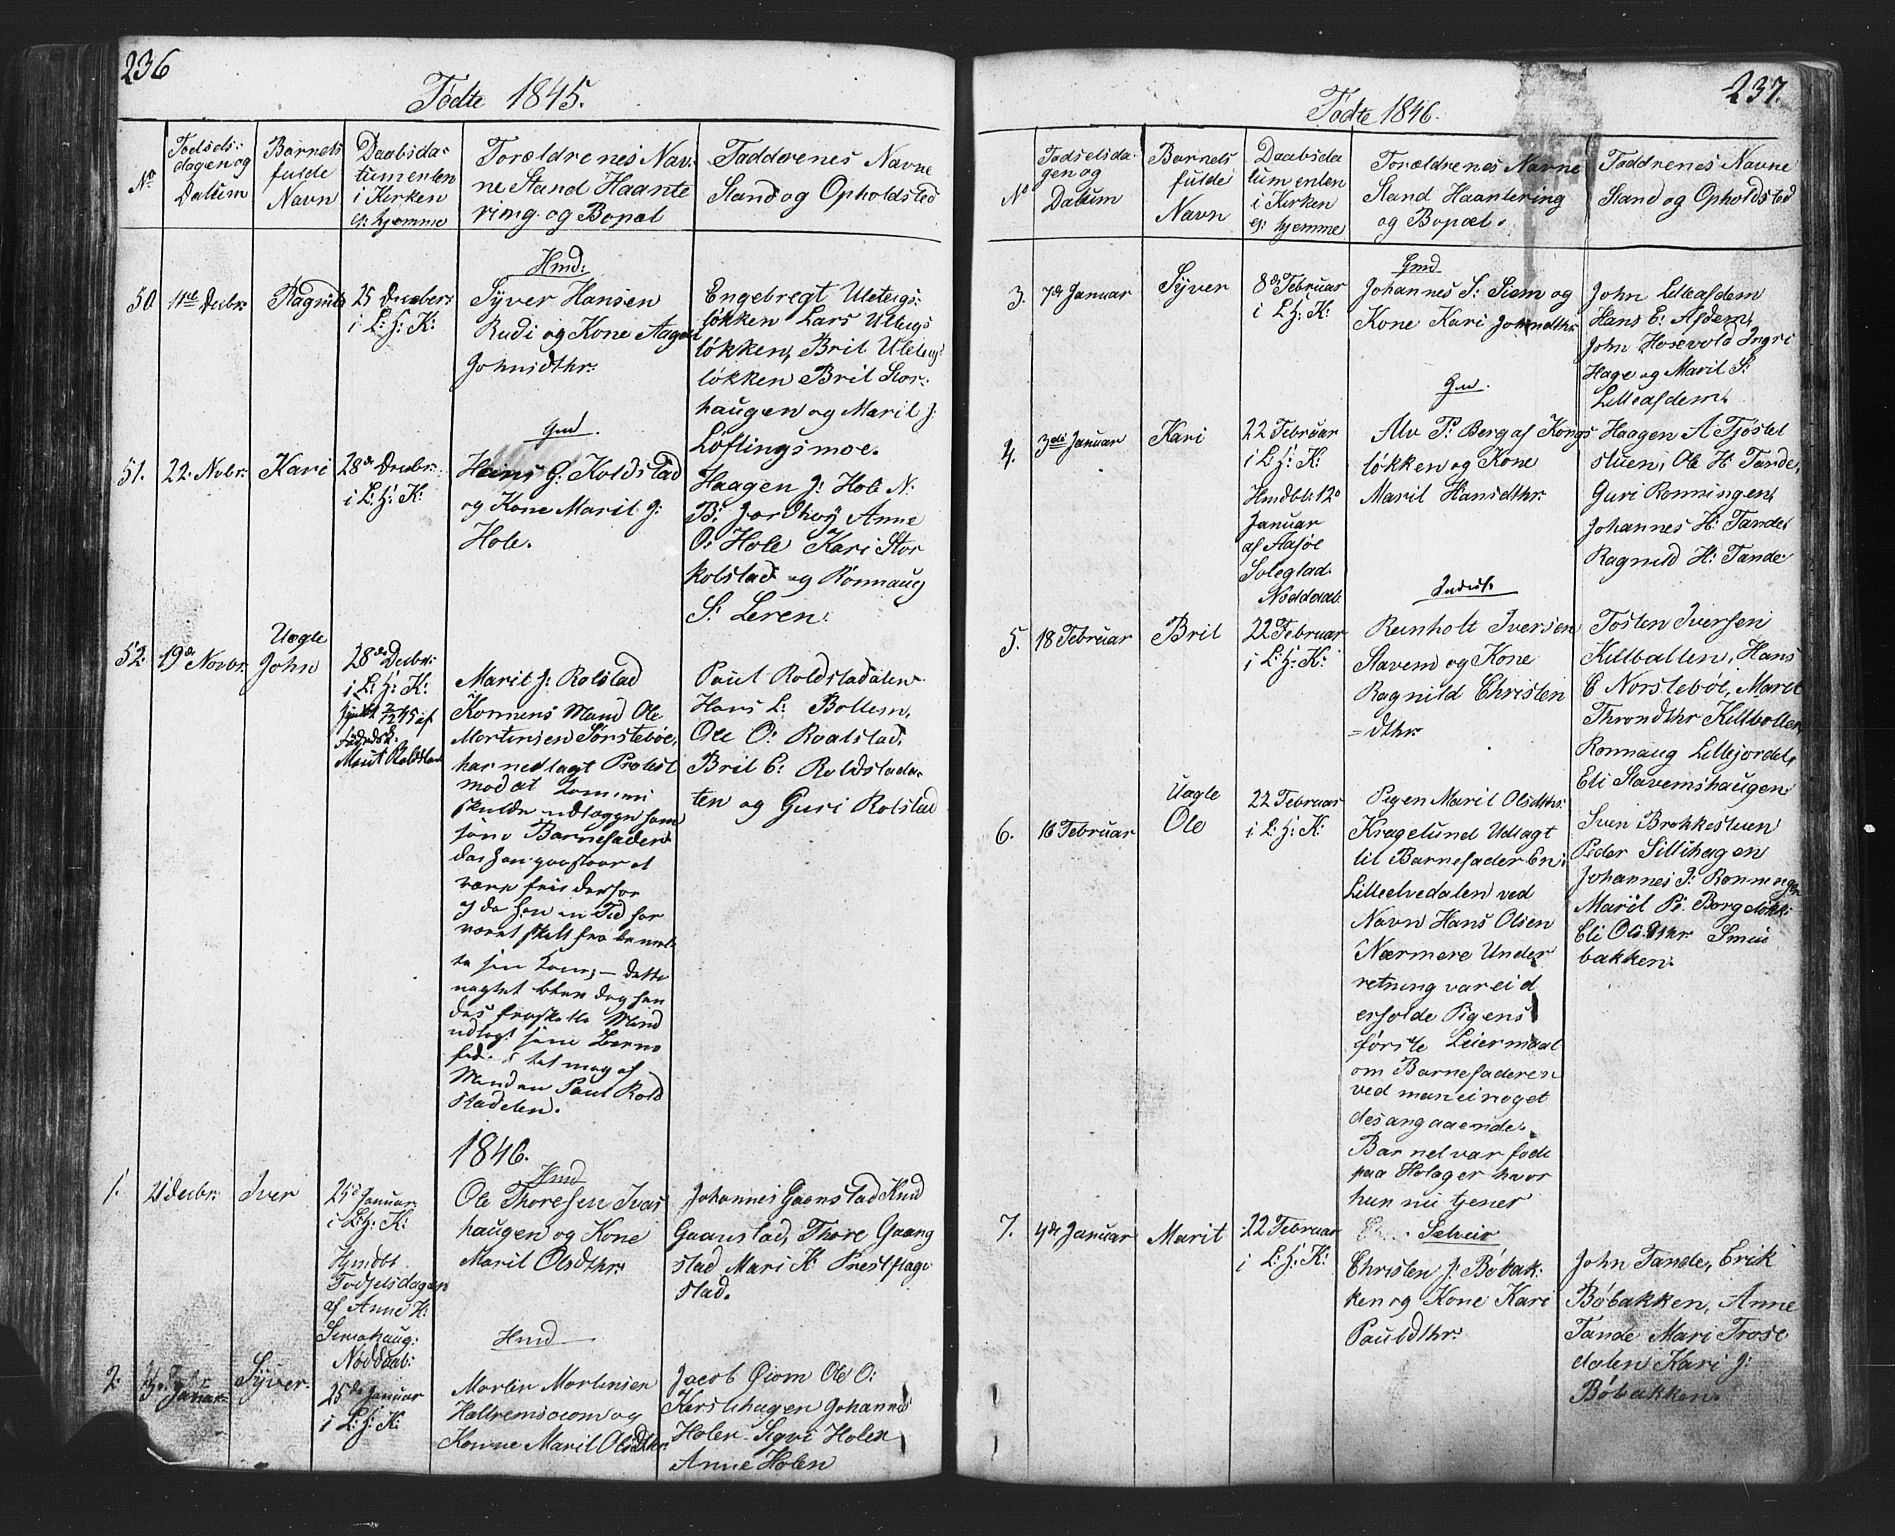 236
Fødte 1845.
No
Fødsels-
dagen og
Datum
Barnets
fulde
Navn
Daabsda-
tumenten
i Kirken
el: hjemme
Forældrenes Nav-
ne Stand Haante
ring og Bopæl
Faddrenes Navne
Stand og Opholdsted
50
11te Decbr:
Ragnild
25 Decber:
i L: H: K:
Hmd:
Syver Hansen
Rudi og Kone Aagot
Johnsdthr:
Engebregt Uleteigs-
løkken Lars Ulteigs
løkken, Brit Uleteigs
løkken Brit Stor-
haugen og Marit J:
Løftingsmoe.
51.
22. Novbr:
Kari
28de Decbr:
i L: H: K:
Gmd.
Hans G: Koldstad
og Kone Marit J:
Hole.
Haagen J: Hole N.
B: Jordhøy Anne
O: Hole Kari Stor
kolstad og Rønnaug
S: Leren:
52.
19de Novbr.
Uægte
John
28de Decbr:
i L: H: K:
Marit J: Rolstad
Konnens Mand Ole
Mortensen Sørstebøe,
har nedlagt Protest
mod at Konnen
skulde udlægge ham
som Barnefaderen
da han paastaar at
være frie derfor
og da han en Tid har
været skilt fra bemel-
te sin Kone; – dette
uagtet blev dog hen
des fraskilte Mand
udlagt som Barne
fad:
Manden Paul Rold
stadelen.
Poul Roldstadalen
Hans L: Bollem,
Ole O: Roalstad,
Brit E: Roldstada-
len og Guri Rolstad
1846.
1.
21 Decbr:
Iver
25de Januar
i L: H: K:
Hjmdbt
Fødselsdagen
af Anne H:
Nøddaab:
Hmd
Ole Thoresen Ivars
haugen og Kone
Marit Olsdthr:
Johannes Gaanstad Knud
Gaanstad, Thore Gaang
stad Mari K: Prestflage
stad.
2.
Januar
Syver.
25de Januar
i L: H: K:
Hmd
Morten Mortensen
Hattremsoom og
Konne Marit Olsdthr:
Jacob Øiom Ole O:
Kerstihagen Johannes
Holen Sigri Holen
Anne Holen
237.
Fødte 1846.
No
Fødselsda-
gen og
Datum
Barnets
fulde
Navn
Daabsda
tumenten
i Kirken
el: hjemme
Forældrenes Navne
Stand Haantering
og Bopæl.
Faddrenes Navne
Stand og Opholdsted
3.
7de Januar
Syver
8de Februar
i L: H: K:
Gmd
Johannes S: Siem og
Kone Kari Johnsdthr.
John Lilleafdem
Hans E: Afdem,
John Hosevold Ingri
Hage og Marit S:
Lilleafdem,
4.
3die Januar
Kari
22 Februar
i L: H: K:
Hmdbt: 12e
Januar
af Aasøe
Soleglad.
Nøddaab.
Gm.
Alv P: Berg af Kongs
løkken og Kone
Marit Hansdthr.
Haagen A: Fjøstel
stuen, Ole H: Tande,
Guri Rønningen,
Johannes H: Tande,
Ragnild H: Tande
5.
18 Februar
Brit
22 Februar
i L: H: K:
Inderst:
Reinholt Iversen
Stavem og Kone
Ragnild Christen
=dthr.
Tosten Iversen
Kiltballen, Hans
E Norstebøe, Marit
Throndthr Kiltbolten
Ronnaug Lillejordet,
Eli Stavemshaugen
6.
16 Februar
Uægte
Ole
22 Februar
i L: H: K:
Pigen Marit Olsdthr:
Kragelund Udlagt
til Barnefader En:
Lilleelvedalen ved
Navn Hans Olsen
Nærmere Under
retning var ei d
erfolde Pigens
første Leiermaal
om Barnefaderen
ved man ei noget
desangaaende.
Barnet var født
paa Holager hvor
hun nu tjener
Sven Brekkestuen
Peder Sillihagen
Johannes P: Ronningen
Marit P: Borgeløkk:
Eli Olsdthr. Smiu
bakken.
7.
4de Januar
Marit
22 Februar
i L: H: K:
Christen J: Bøbak:
ken og Kone Kari
Paulsdthr:
John Tande, Erik
Bøbakken, Anne
Tande Mari Trose
dalen Kari J:
Bøbakken.